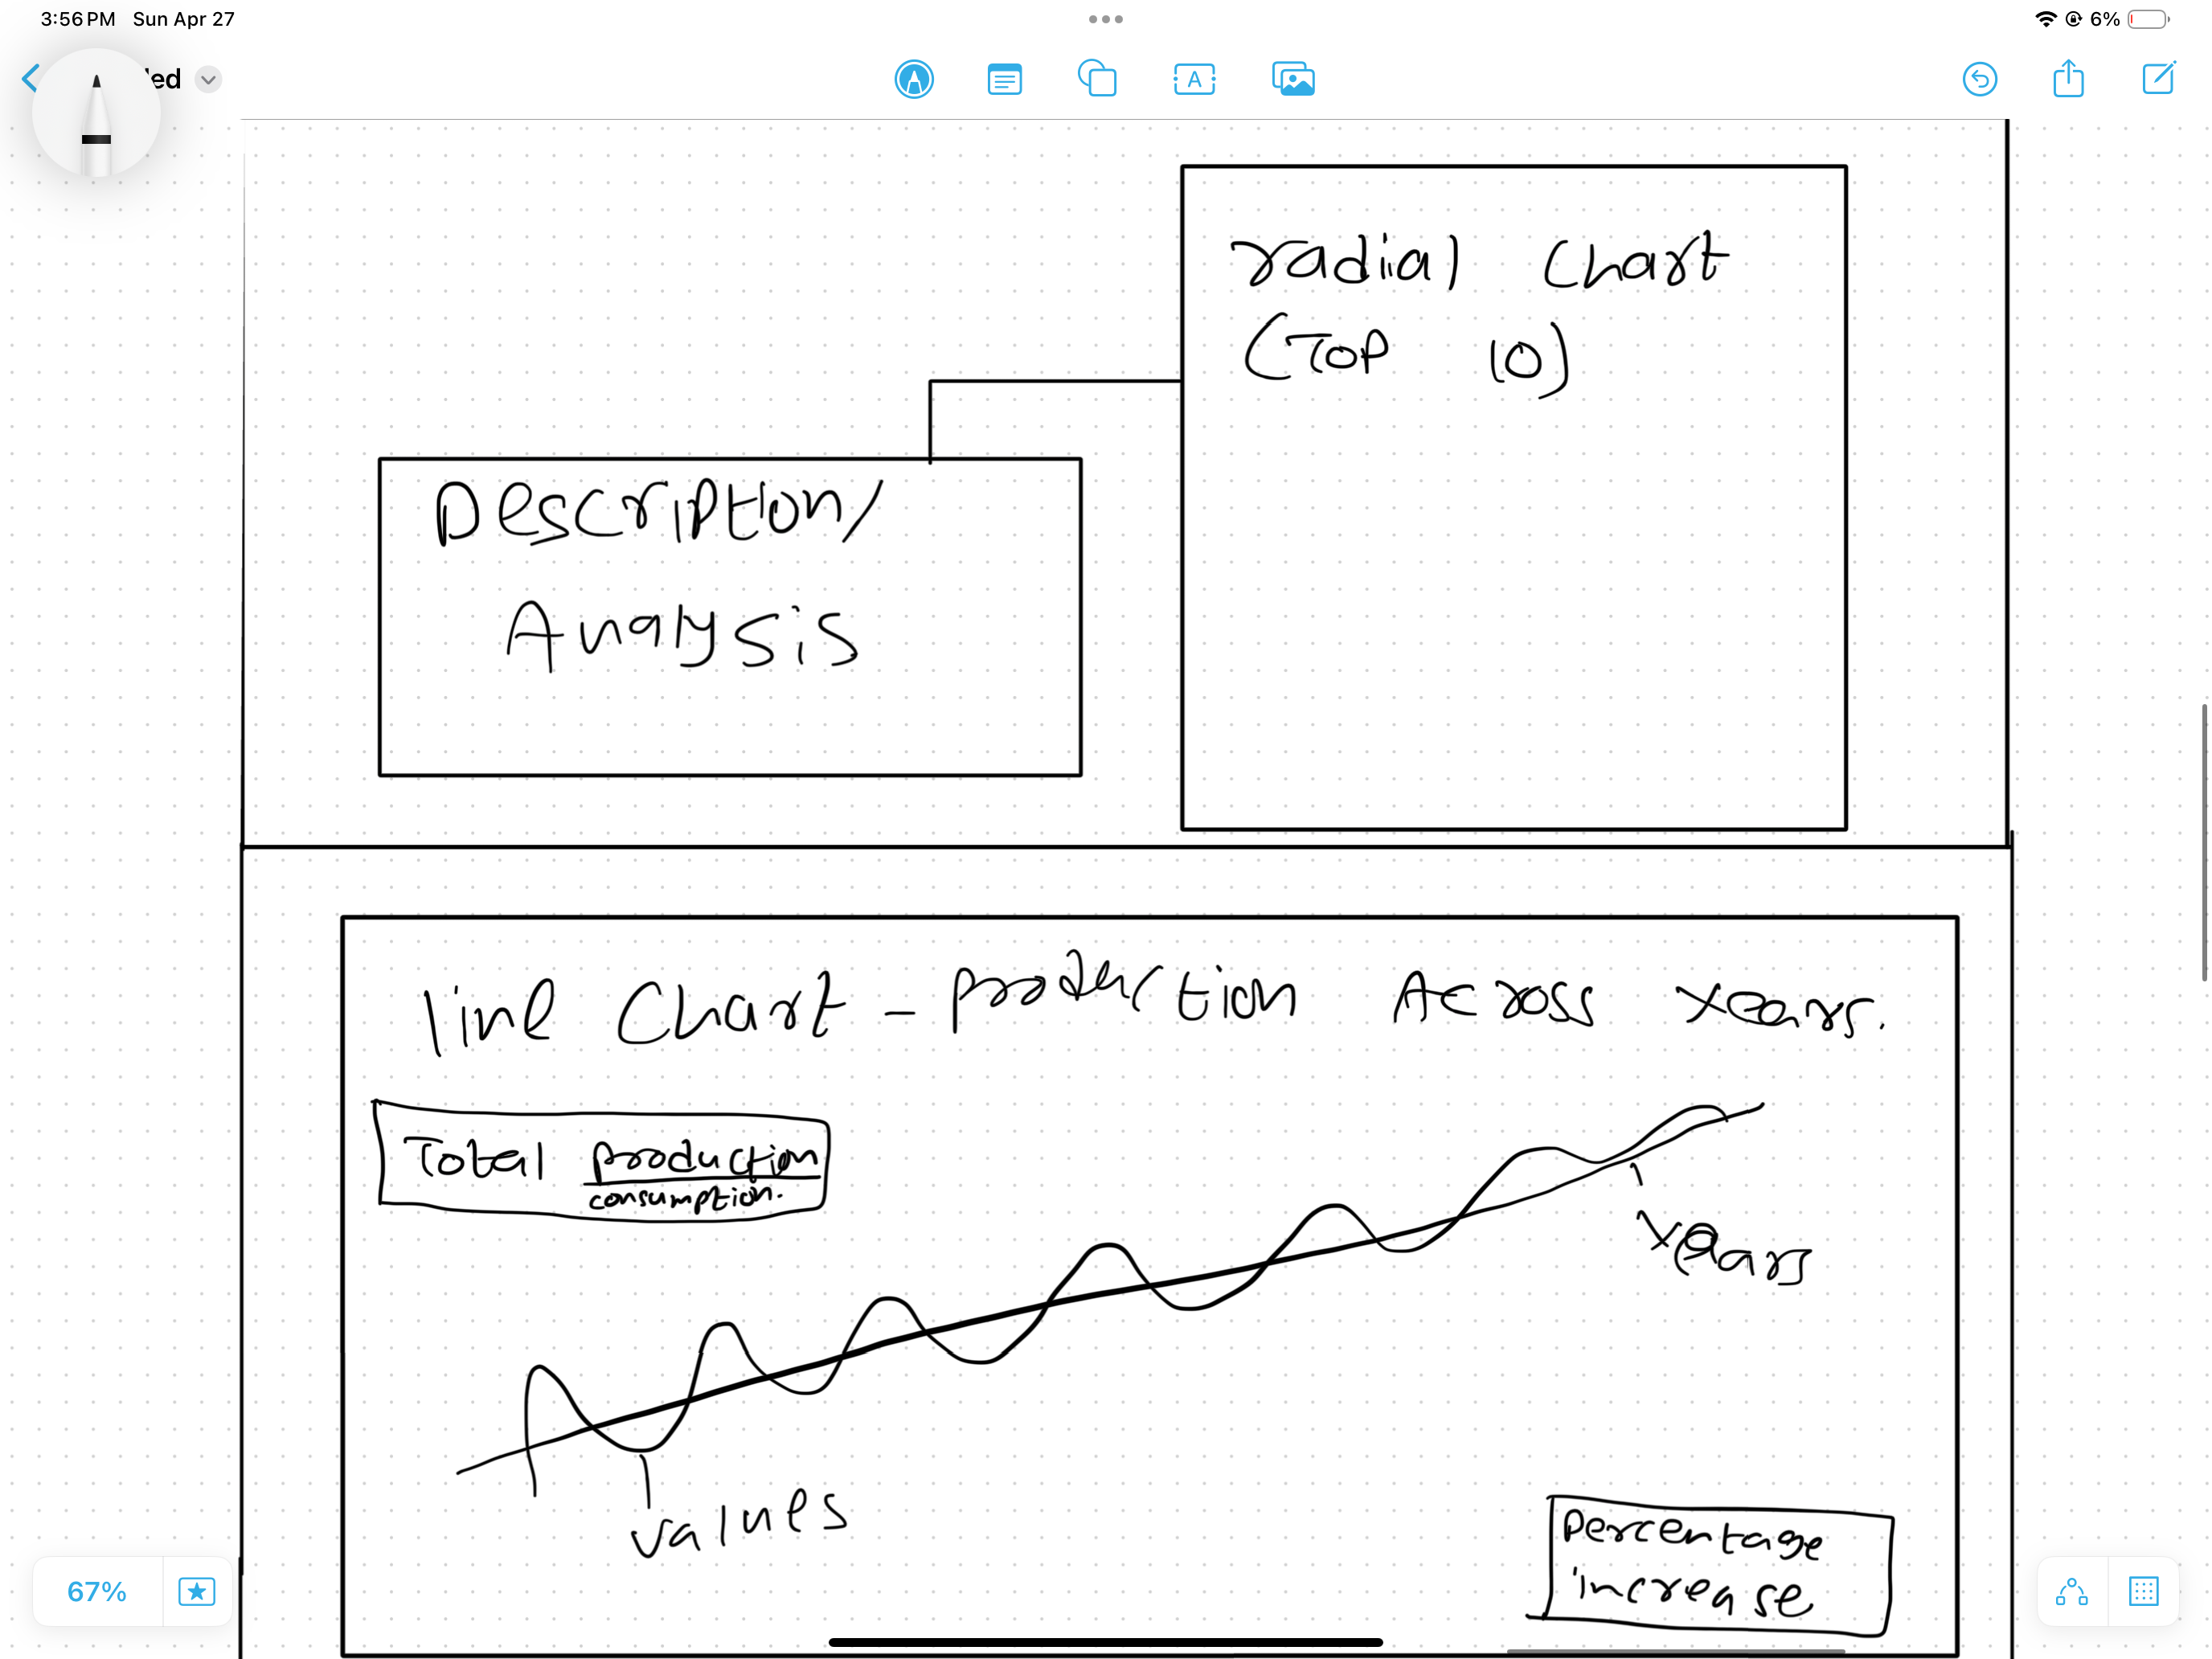 3:56 PM Sun Apr 27
6%
ed
A
radial chart
(TOP 10)
Description/
Analysis
line chart - production Across years.
Total production
consumption.
years
values
percentage
increase
67%